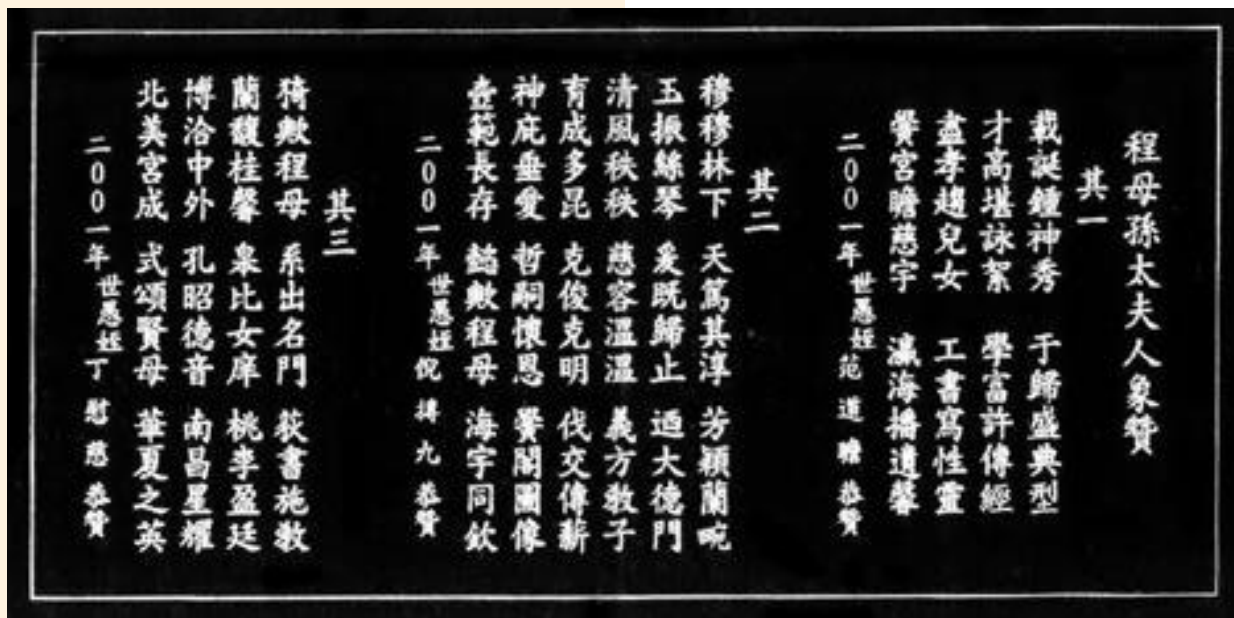 程母孫太夫人象贊
其一
載誕鍾神秀 于歸盛典型
才高堪詠絮 學富許傳經
盡孝趨兒女 工書寫性靈
黌宮瞻慈宇 瀛海播遺馨
二00一年 世愚姪 范道瞻 恭贊
其二
穆穆林下 天篤其淳 芳穎蘭畹
玉振絲琴 爰既歸止 迺大德門
清風秩秩 慈容溫溫 義方教子
育成多昆 克俊克明 伐交傳薪
神庇垂愛 哲嗣懷恩 黌閣圖像
壼範長存 懿歟程母 海宇同欽
二00一年 世愚姪 倪摶九 恭贊
其三
猗歟程母 系出名門 荻書施教
蘭馥桂馨 皋比女庠 桃李盈廷
博洽中外 孔昭德音 南昌星耀
北美宮成 式頌賢母 華夏之英
二00一年 世愚姪 丁慰慈 恭贊